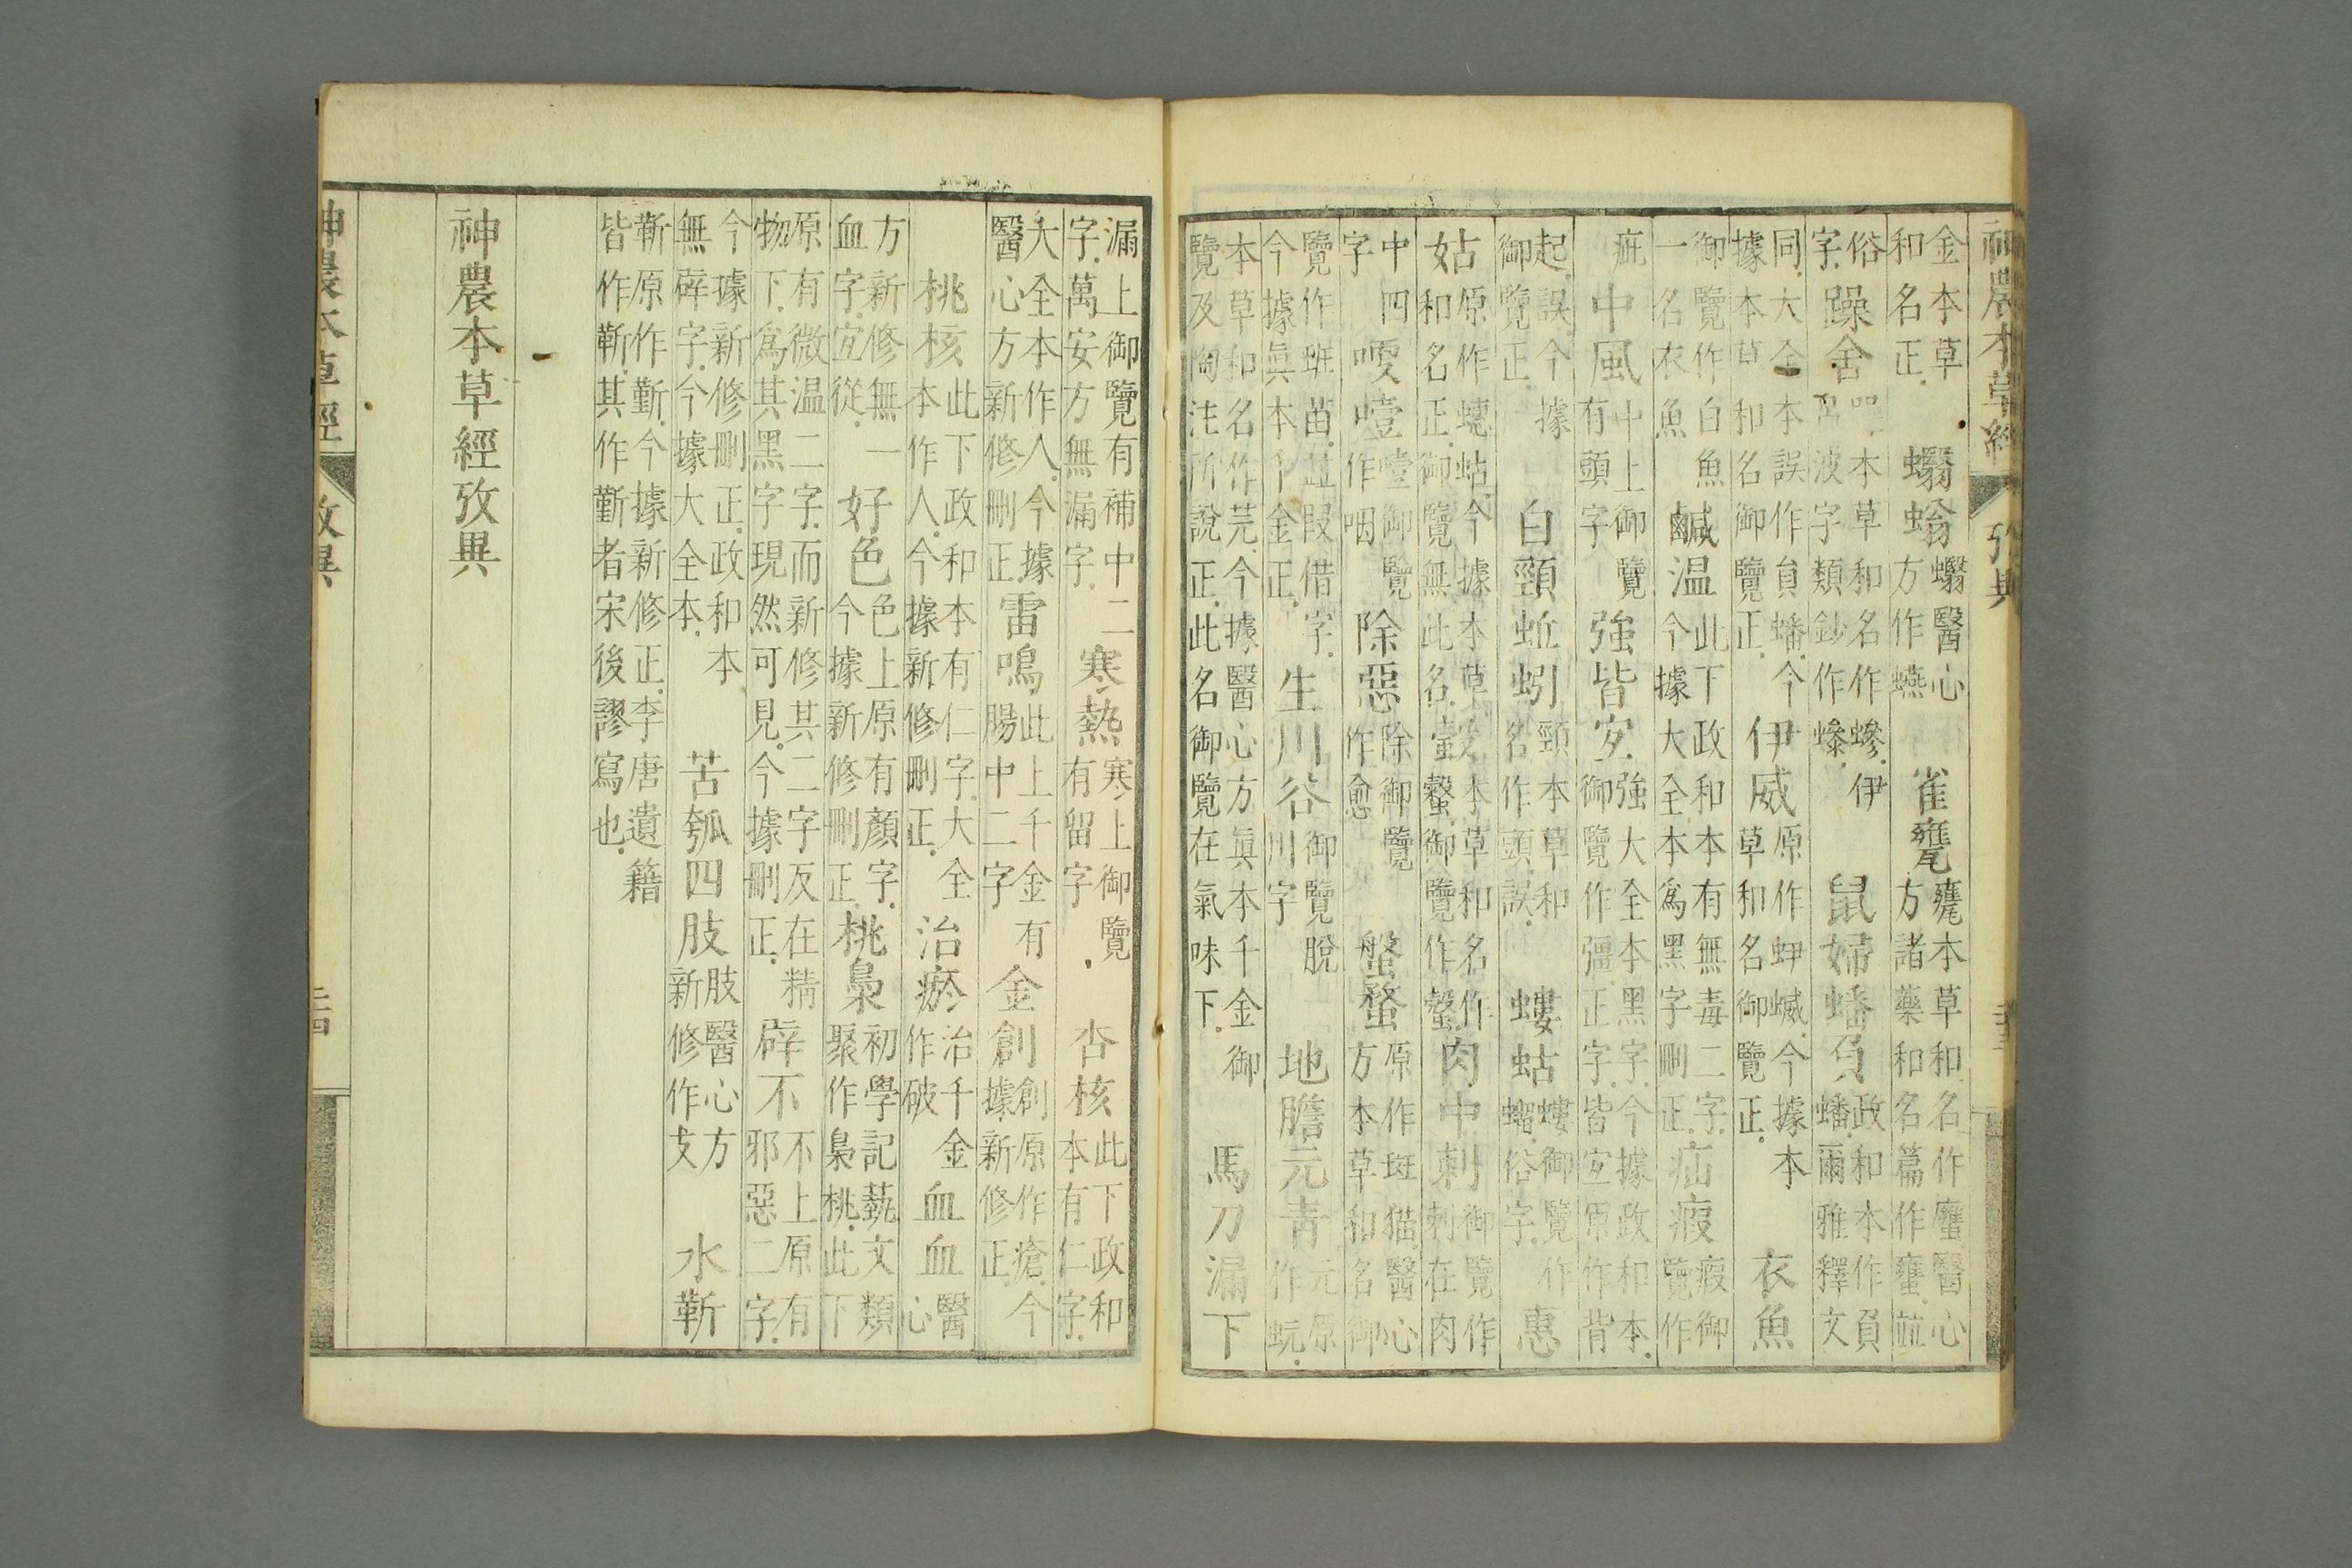 神農本草經 攷異
金本草和名正.蠮螉蠮醫心方作 雀甕甕本草和名作 醫心方諸藥和名篇作 竝
俗字.躁舍 本草和名作 伊呂波字類鈔作 鼠婦蟠負政和本作負蟠.爾雅釋文
同.大全本誤作負蟠.今據本草和名御覽正.伊威原作蛜蝛.今據本草和名御覽正.衣魚
御覽作白魚一名衣魚鹹温此下政和本有無毒二字.今據大全本爲黑字刪正.疝瘕瘕御覽作
疵中風中上御覽有頭字強皆宜強大全本黑字.今據政和本.御覽作彊.正字.皆宜原作背
起.誤.今據御覽正.白頸蚯蚓頸本草和名作頭.誤.螻蛄螻御覽作 俗字.惠
姑原作蟪蛄.今據本草和名正.御覽無此名. 本草和名作 御覽作 肉中刺御覽作刺在肉
中四字噯噎噎御覽作咽除惡除御覽作愈螌蝥原作斑猫.醫心方本草和名御
覽作班苗.竝叚借字.今據眞本千金正.生川谷御覽脫川字地膽元青元原作蚖.
本草和名作芫.今據醫心方眞本千金御覽及陶注所說正.此名御覽在氣味下.馬刀漏下
漏上御覽有補中二字.萬安方無漏字.寒熱寒上御覽有留字.杏核此下政和本有仁字.
大全本作人.今據醫心方新修刪正.雷鳴此上千金有腸中二字金創創原作瘡.今據新修正.
桃核此下政和本有仁字.大全本作人.今據新修刪正.治瘀治千金作破血血醫心
方新修無一血字.宜從.好色色上原有顏字.今據新修刪正.桃梟初學記藝文類聚作梟桃.此下
原有微温二字.而新修其二字反在精物下.爲其黑字現然可見.今據刪正.辟不不上原有邪惡二字.
今據新修刪正.政和本無辟字.今據大全本.苦瓠四肢肢醫心方新修作支水靳
靳原作勤.今據新修正.李唐遺籍皆作靳.其作勤者宋後謬寫也.
神農本草經攷異
神農本草經 攷異 三十四